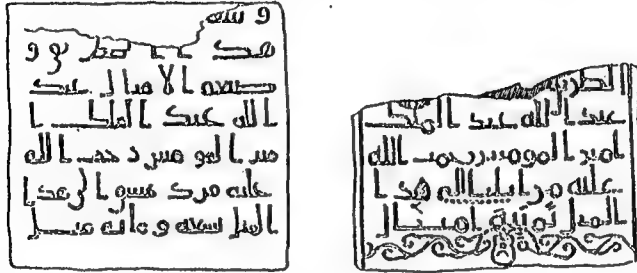 صنعه الاميال عبد
الله عبد الملك ا
مير المومنين رحمت الله
عليه من دمشق الى هذا
الميل تسعه ومائه ميل
الطريق
عبد الله عبد الملك
امير المومنين رحمت الله
عليه من ايليا الى هذا
الميل ثمنية اميال